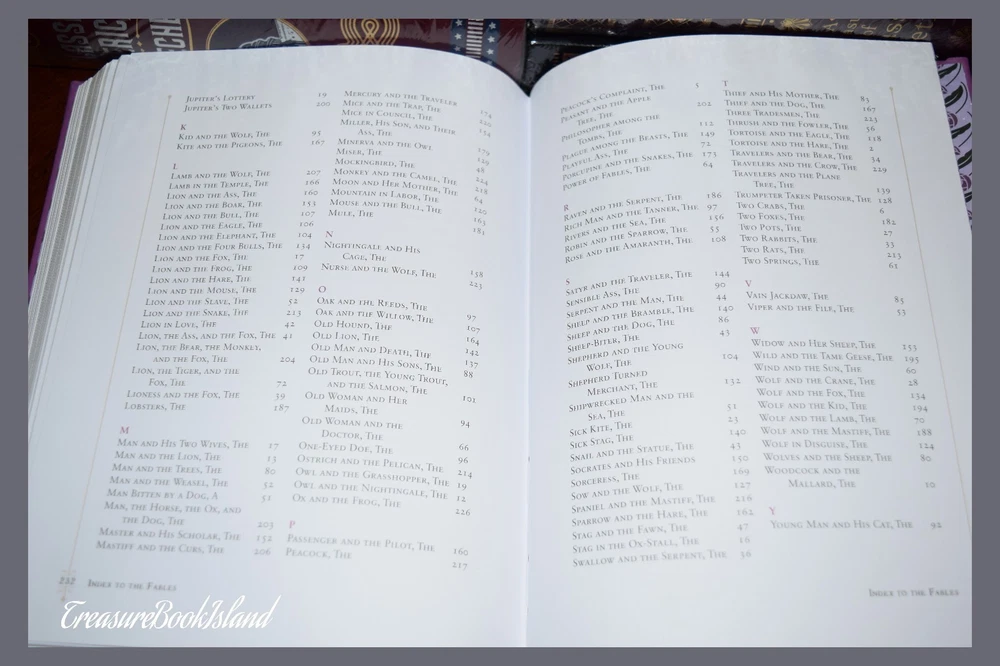 Jupiter's Lottery 19
Jupiter's Two Wallets 200
K
Kid and the Wolf, The 95
Kite and the Pigeons, The 167
L
Lamb and the Wolf, The 207
Lamb in the Temple, The 166
Lion and the Ass, The 160
Lion and the Boar, The 153
Lion and the Bull, The 107
Lion and the Eagle, The 106
Lion and the Elephant, The 104
Lion and the Four Bulls, The 134
Lion and the Fox, The 17
Lion and the Frog, The 109
Lion and the Hare, The 141
Lion and the Mouse, The 129
Lion and the Slave, The 52
Lion and the Snake, The 213
Lion in Love, The 42
Lion, the Ass, and the Fox, The 41
Lion, the Bear, the Monkey,
and the Fox, The 204
Lion, the Tiger, and the
Fox, The 72
Lioness and the Fox, The 39
Lobsters, The 187
M
Man and His Two Wives, The 17
Man and the Lion, The 13
Man and the Trees, The 80
Man and the Weasel, The 52
Man Bitten by a Dog, A 51
Man, the Horse, the Ox, and
the Dog, The 203
Master and His Scholar, The 152
Mastiff and the Curs, The 206
Mercury and the Traveler 174
Mice and the Trap, The 220
Mice in Council, The 154
Miller, His Son, and Their
Ass, The 179
Minerva and the Owl 129
Miser, The 48
Mockingbird, The 224
Monkey and the Camel, The 218
Moon and Her Mother, The 64
Mountain in Labor, The 120
Mouse and the Bull, The 163
Mule, The 181
N
Nightingale and His
Cage, The 158
Nurse and the Wolf, The 223
O
Oak and the Reeds, The 97
Oak and the Willow, The 107
Old Hound, The 164
Old Lion, The 142
Old Man and Death, The 137
Old Man and His Sons, The 88
Old Trout, the Young Trout,
and the Salmon, The 101
Old Woman and Her
Maids, The 94
Old Woman and the
Doctor, The 66
One-Eyed Doe, The 96
Ostrich and the Pelican, The 214
Owl and the Grasshopper, The 19
Owl and the Nightingale, The 12
Ox and the Frog, The 226
P
Passenger and the Pilot, The 160
Peacock, The 217
232 Index to the Fables
Peacock's Complaint, The 1
Peasant and the Apple
Tree, The 202
Philosopher among the
Tombs, The 112
Plague among the Beasts, The 149
Playful Ass, The 72
Porcupine and the Snakes, The 173
Power of Fables, The 64
R
Raven and the Serpent, The 186
Rich Man and the Tanner, The 97
Rivers and the Sea, The 156
Robin and the Sparrow, The 55
Rose and the Amaranth, The 108
S
Satyr and the Traveler, The 144
Sensible Ass, The 90
Serpent and the Man, The 44
Sheep and the Bramble, The 140
Sheep and the Dog, The 86
Sheep-Biter, The 43
Shepherd and the Young
Wolf, The 104
Shepherd Turned
Merchant, The 132
Shipwrecked Man and the
Sea, The 51
Sick Kite, The 23
Sick Stag, The 140
Snail and the Statue, The 43
Socrates and His Friends 150
Sorceress, The 169
Sow and the Wolf, The 127
Spaniel and the Mastiff, The 216
Sparrow and the Hare, The 162
Stag and the Fawn, The 47
Stag in the Ox-Stall, The 16
Swallow and the Serpent, The 36
T
Thief and His Mother, The 83
Thief and the Dog, The 167
Three Tradesmen, The 223
Thrush and the Fowler, The 56
Tortoise and the Eagle, The 118
Tortoise and the Hare, The 2
Travelers and the Bear, The 34
Travelers and the Crow, The 229
Travelers and the Plane
Tree, The 139
Trumpeter Taken Prisoner, The 128
Two Crabs, The 6
Two Foxes, The 182
Two Pots, The 27
Two Rabbits, The 33
Two Rats, The 213
Two Springs, The 61
V
Vain Jackdaw, The 85
Viper and the File, The 53
W
Widow and Her Sheep, The 155
Wild and the Tame Geese, The 195
Wind and the Sun, The 60
Wolf and the Crane, The 28
Wolf and the Fox, The 134
Wolf and the Kid, The 194
Wolf and the Lamb, The 70
Wolf and the Mastiff, The 188
Wolf in Disguise, The 124
Wolves and the Sheep, The 80
Woodcock and the
Mallard, The 10
Y
Young Man and His Cat, The 92
Index to the Fables
TreasureBookIsland